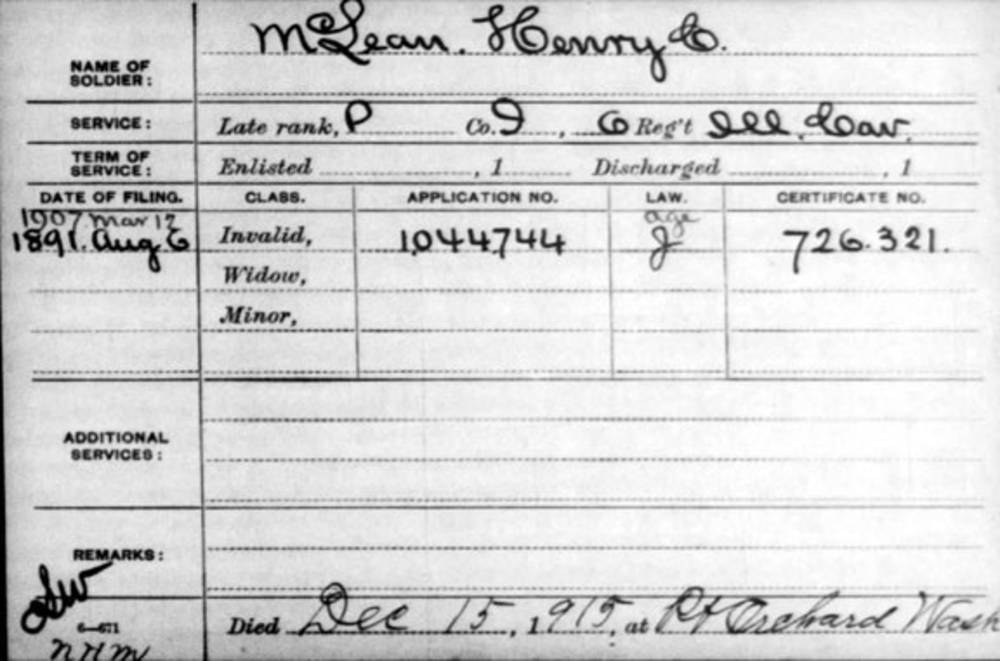 McLean. Henry C.
NAME OF SOLDIER:
SERVICE: Late rank, P Co. I, 6 Reg't Ill. Cav.
TERM OF SERVICE: Enlisted , 1 Discharged , 1
DATE OF FILING. CLASS. APPLICATION NO. LAW. CERTIFICATE NO.
1907 Mar 12 age
1891. Aug 6 Invalid, 1044744 J 726.321.
Widow,
Minor,
ADDITIONAL SERVICES:
REMARKS:
6—671
Died Dec 15, 1915, at Pt Orchard Wash